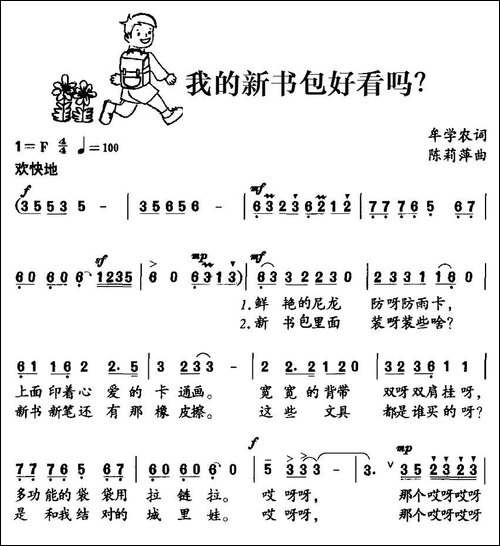 我的新书包好看吗?
1=F 4/4 ♩=100
牟学农词
欢快地
陈莉萍曲
f mf
(3553 5 - | 35656 - | 63236212 | 77765 67 |
mf mp mf
60 606 0 1235 | 6 0 6313) | 63 32230 | 2233 1 60 |
1.鲜 艳的尼龙 防呀防雨卡,
2.新 书包里面 装呀装些啥?
61 162 2·5 | 3 223 - | 2 2·2120 | 323611 |
上面印着心 爱的卡通画。 宽宽的背带 双呀双肩挂呀,
新书新笔还 有那橡皮擦。 这些文具 都是谁买的呀?
f mp
77765 67 | 60 606 0 | 5 333 - | 3· 35 2323 |
多功能的袋袋用 拉链拉。 哎呀呀, 那个哎呀哎呀
是和我结对的 城里娃。 哎呀呀, 那个哎呀哎呀